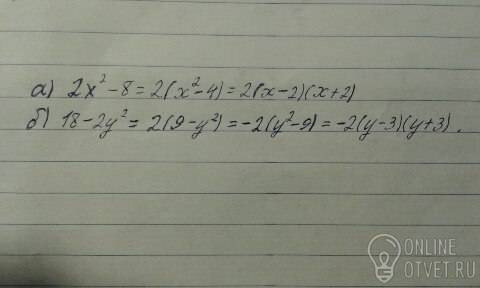 а) 2x² - 8 = 2(x² - 4) = 2(x - 2)(x + 2)
б) 18 - 2y² = 2(9 - y²) = -2(y² - 9) = -2(y - 3)(y + 3).
ONLINE
OTVET.RU